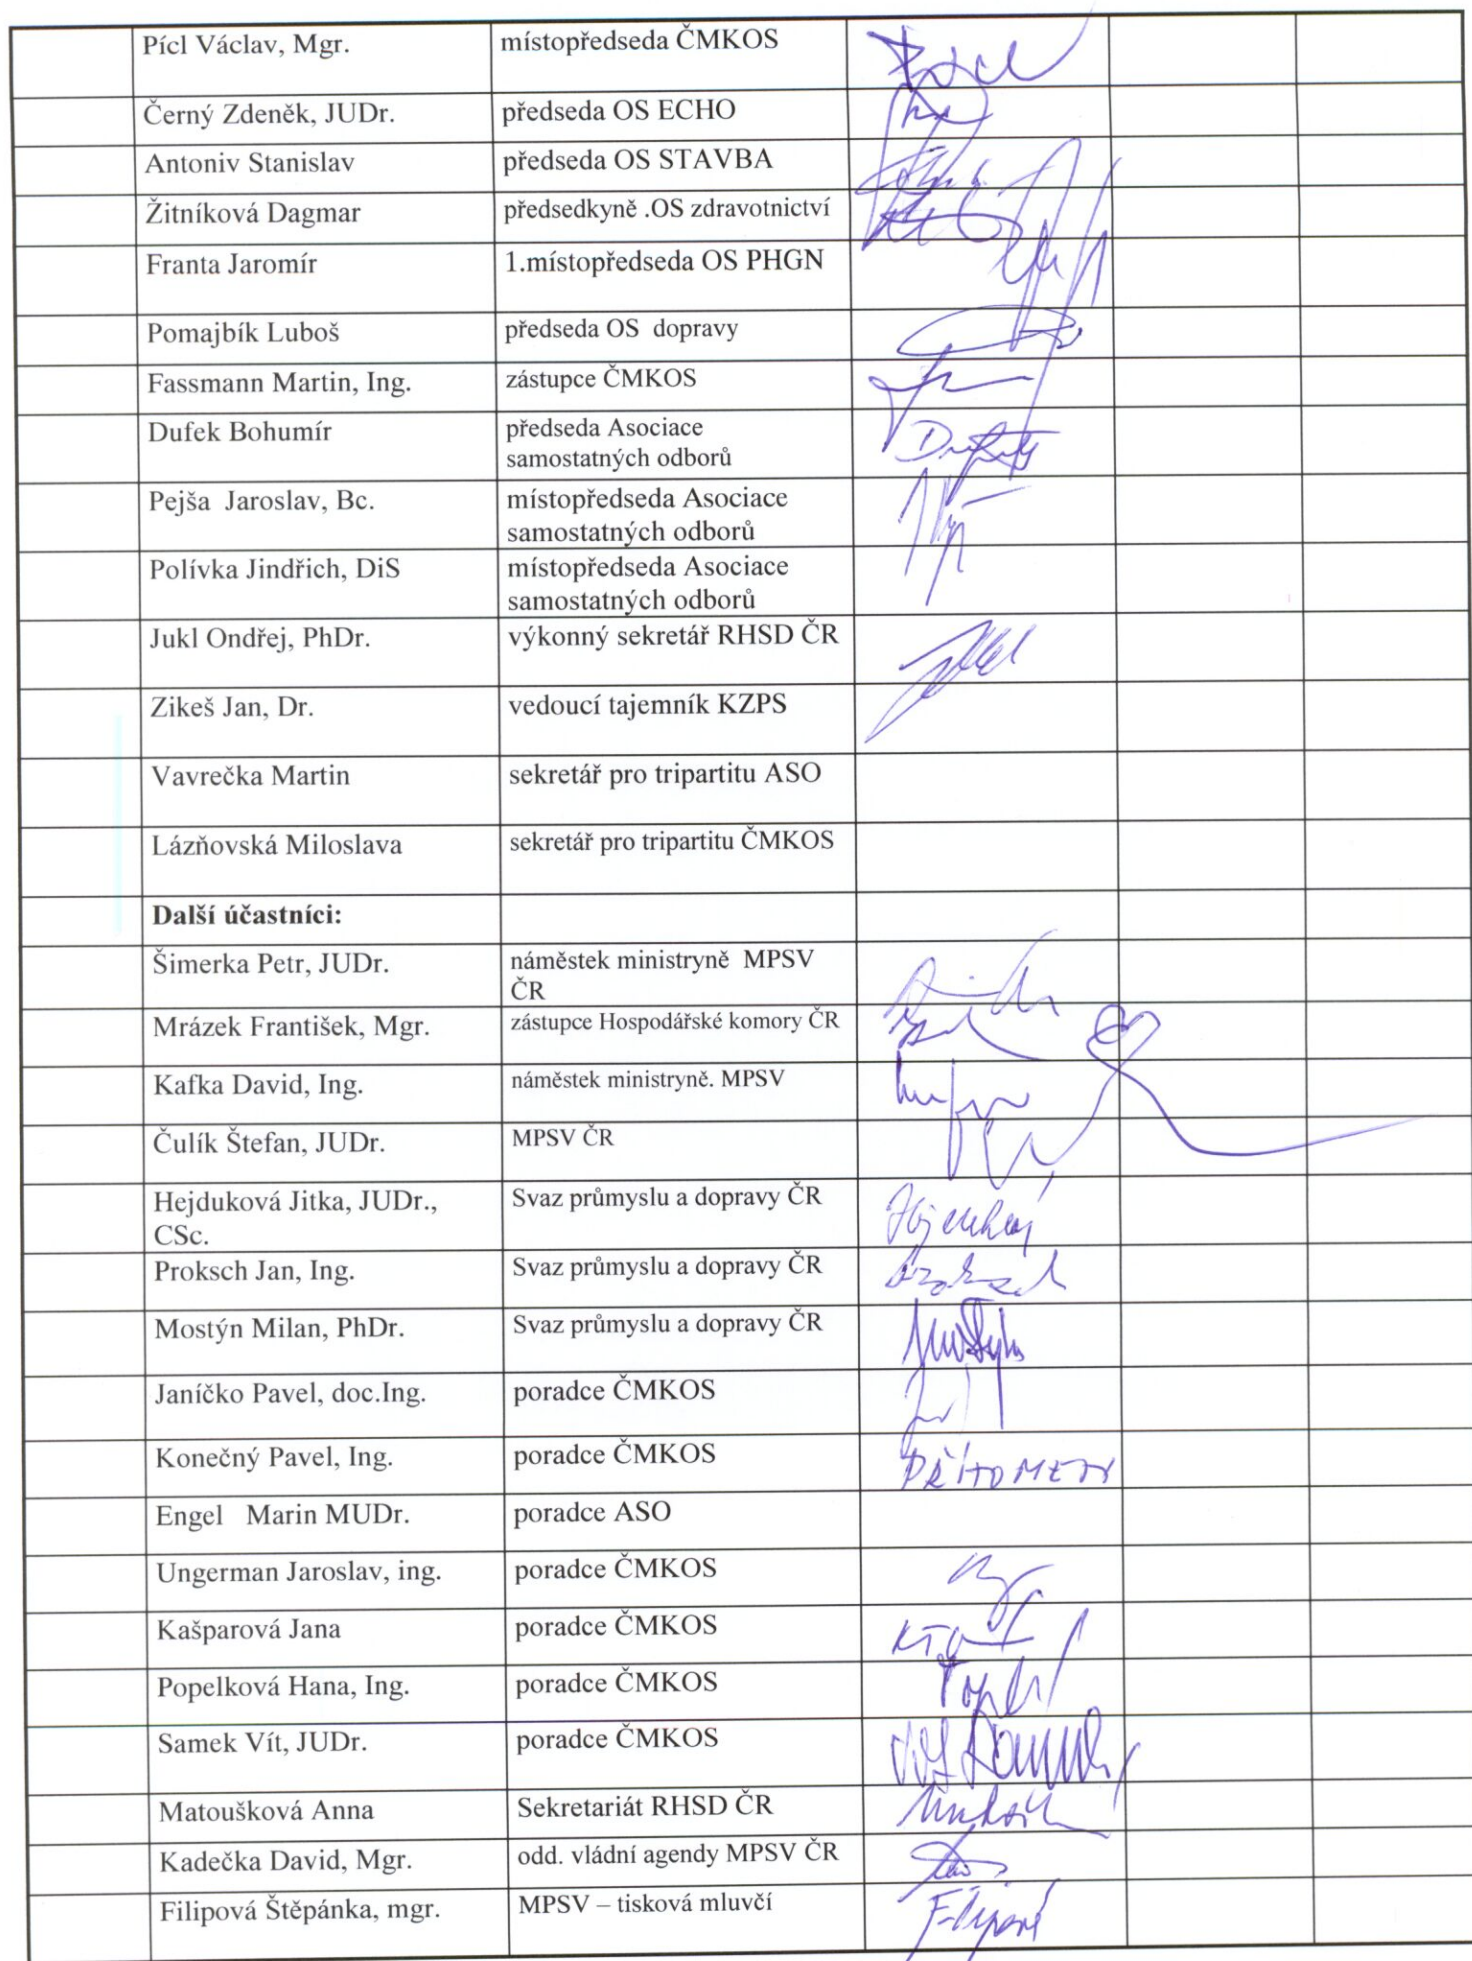 Pícl Václav, Mgr. místopředseda ČMKOS
Černý Zdeněk, JUDr. předseda OS ECHO
Antoniv Stanislav předseda OS STAVBA
Žitníková Dagmar předsedkyně .OS zdravotnictví
Franta Jaromír 1.místopředseda OS PHGN
Pomajbík Luboš předseda OS dopravy
Fassmann Martin, Ing. zástupce ČMKOS
Dufek Bohumír předseda Asociace
samostatných odborů
Pejša Jaroslav, Bc. místopředseda Asociace
samostatných odborů
Polívka Jindřich, DiS místopředseda Asociace
samostatných odborů
Jukl Ondřej, PhDr. výkonný sekretář RHSD ČR
Zikeš Jan, Dr. vedoucí tajemník KZPS
Vavrečka Martin sekretář pro tripartitu ASO
Lázňovská Miloslava sekretář pro tripartitu ČMKOS
Další účastníci:
Šimerka Petr, JUDr. náměstek ministryně MPSV
ČR
Mrázek František, Mgr. zástupce Hospodářské komory ČR
Kafka David, Ing. náměstek ministryně. MPSV
Čulík Štefan, JUDr. MPSV ČR
Hejduková Jitka, JUDr., Svaz průmyslu a dopravy ČR
CSc.
Proksch Jan, Ing. Svaz průmyslu a dopravy ČR
Mostýn Milan, PhDr. Svaz průmyslu a dopravy ČR
Janíčko Pavel, doc.Ing. poradce ČMKOS
Konečný Pavel, Ing. poradce ČMKOS
Engel Marin MUDr. poradce ASO
Ungerman Jaroslav, ing. poradce ČMKOS
Kašparová Jana poradce ČMKOS
Popelková Hana, Ing. poradce ČMKOS
Samek Vít, JUDr. poradce ČMKOS
Matoušková Anna Sekretariát RHSD ČR
Kadečka David, Mgr. odd. vládní agendy MPSV ČR
Filipová Štěpánka, mgr. MPSV – tisková mluvčí Filipová